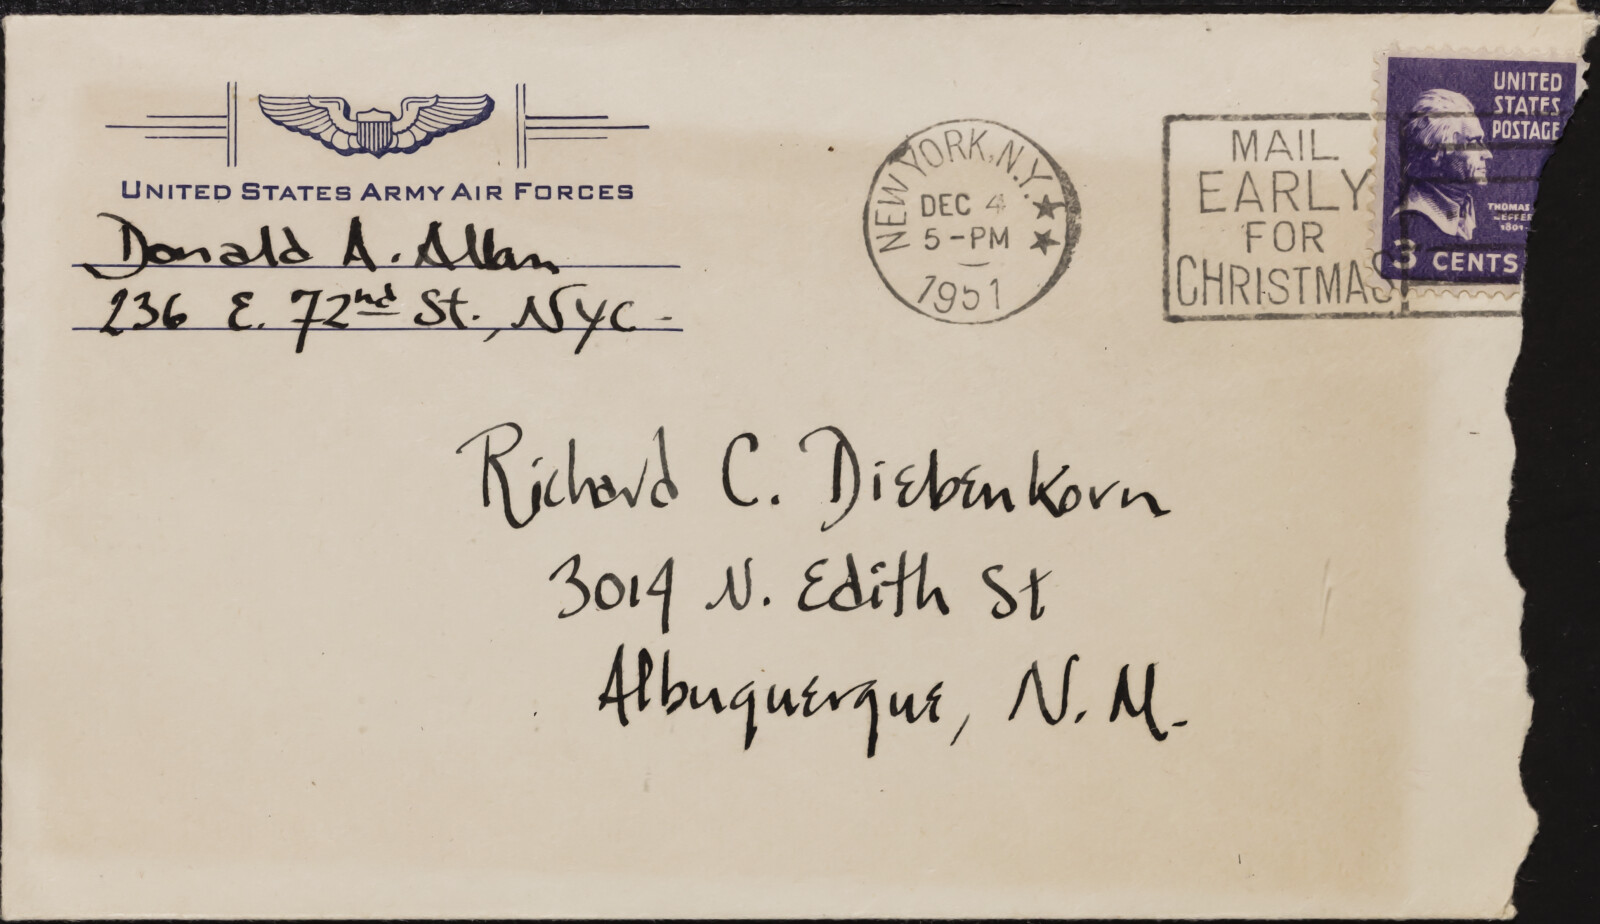 UNITED STATES ARMY AIR FORCES
Donald A. Allan
236 E. 72nd St., NYC -
NEW YORK, N.Y.
DEC 4
5-PM
1951
MAIL
EARLY
FOR
CHRISTMAS
UNITED
STATES
POSTAGE
THOMAS
JEFFER
1801-
3 CENTS
Richard C. Diebenkorn
3014 N. Edith St
Albuquerque, N.M.